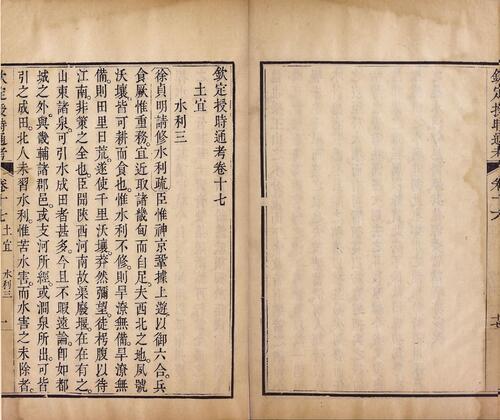 欽定授時通考卷十七
土宜
水利三
徐貞明請修水利疏臣惟神京鞏據上遊以御六合兵
食厥惟重務宜近取諸畿甸而自足夫西北之地夙號
沃壤皆可耕而食也惟水利不修則旱潦無備旱潦無
備則田里日荒遂使千里沃壤莽然彌望徒枵腹以待
江南非策之全也臣聞陝西河南故渠廢堰在在有之
山東諸泉可引水成田者甚多今且不暇遠論即如都
城之外與畿輔諸郡邑或支河所經或澗泉所出可皆
引之成田北人未習水利惟苦水害而水害之未除者
欽定授時通考 卷十七 土宜 水利三 一
欽定授時通考